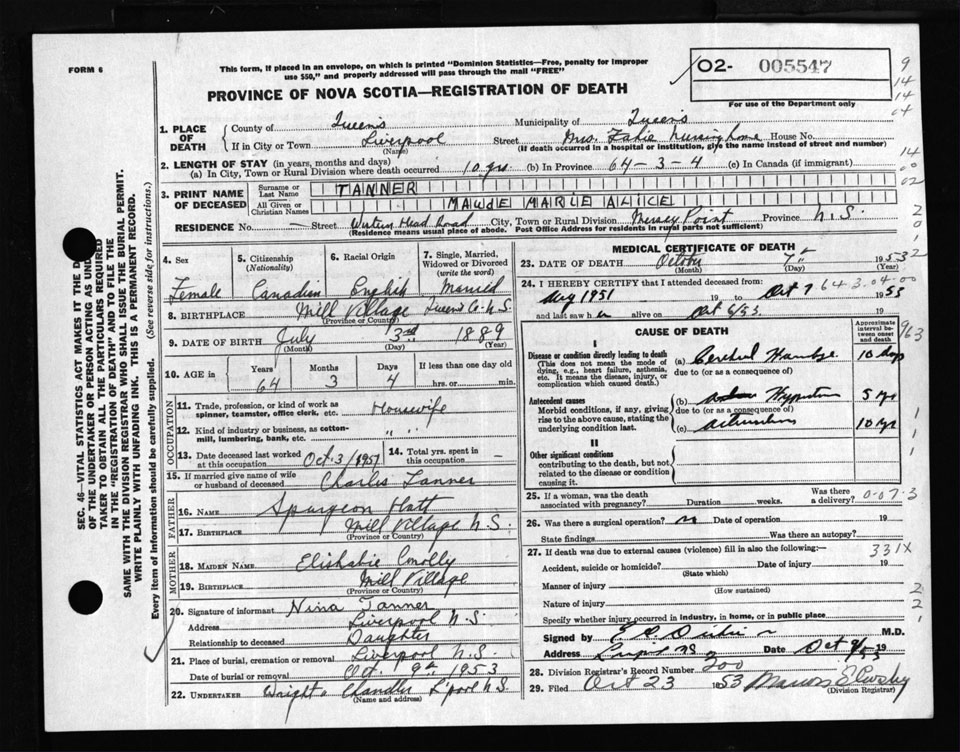 FORM 6
This form, if placed in an envelope, on which is printed "Dominion Statistics—Free, penalty for improper
use $50," and properly addressed will pass through the mail "FREE"
PROVINCE OF NOVA SCOTIA—REGISTRATION OF DEATH
O2- 005547
For use of the Department only
9
14
14
04
1. PLACE OF DEATH
County of Queens Municipality of Queens
If in City or Town Liverpool Street Mrs. Fahie Nursing home House No.
(Name) (If death occurred in a hospital or institution, give the name instead of street and number)
2. LENGTH OF STAY (in years, months and days)
(a) In City, Town or Rural Division where death occurred 10 yrs. (b) In Province 64-3-4 (c) In Canada (if immigrant)
3. PRINT NAME OF DECEASED
Surname or Last Name TANNER
All Given or Christian Names MAUDE MARIE ALICE
RESIDENCE No. — Street Western Head Road City, Town or Rural Division Mersey Point Province N.S.
(Residence means usual place of abode. Post Office Address for residents in rural parts not sufficient)
14
0
02
2
0
1
2
4. Sex
Female
5. Citizenship
(Nationality)
Canadian
6. Racial Origin
English
7. Single, Married, Widowed or Divorced
(write the word)
Married
8. BIRTHPLACE Mill Village Queens Co. N.S.
(Province or Country)
9. DATE OF BIRTH July 3rd 1889
(Month) (Day) (Year)
10. AGE in
Years 64
Months 3
Days 4
If less than one day old
hrs. or min.
OCCUPATION
11. Trade, profession, or kind of work as
spinner, teamster, office clerk, etc. Housewife
12. Kind of industry or business, as cotton-
mill, lumbering, bank, etc. " "
13. Date deceased last worked
at this occupation Oct. 3/1951
14. Total yrs. spent in
this occupation —
15. If married give name of wife
or husband of deceased Charles Tanner
FATHER
16. NAME Spurgeon Hatt
17. BIRTHPLACE Mill Village N.S.
(Province or Country)
MOTHER
18. MAIDEN NAME Elishabie
19. BIRTHPLACE Mill Village
(Province or Country)
20. Signature of informant Nina Tanner
Address Liverpool N.S.
Relationship to deceased Daughter
21. Place of burial, cremation or removal Liverpool N.S.
Date of burial or removal Oct. 9th 1953
22. UNDERTAKER Wright & Chandler L'pool N.S.
(Name and address)
MEDICAL CERTIFICATE OF DEATH
23. DATE OF DEATH October 7th 1953
(Month) (Day) (Year)
24. I HEREBY CERTIFY that I attended deceased from:
1951 19 to Oct 7 1953
643.04.00
and last saw h er alive on Oct 6/53.
CAUSE OF DEATH
Approximate interval between onset and death
963
I
Disease or condition directly leading to death
(This does not mean the mode of
dying, e.g., heart failure, asthenia,
etc. It means the disease, injury, or
complication which caused death.)
(a) 10 days
due to (or as a consequence of)
Antecedent causes
Morbid conditions, if any, giving
rise to the above cause, stating the
underlying condition last.
(b) 5 yrs
due to (or as a consequence of)
(c) 10 yrs
II
Other significant conditions
contributing to the death, but not
related to the disease or condition
causing it
1
1
1
25. If a woman, was the death
associated with pregnancy? Duration weeks. Was there a delivery?
0-07-3
26. Was there a surgical operation? no Date of operation 19
State findings Was there an autopsy?
27. If death was due to external causes (violence) fill in also the following:—
331X
Accident, suicide or homicide? Date of injury 19
(State which)
Manner of injury
(How sustained)
Nature of injury
Specify whether injury occurred in industry, in home, or in public place
2
2
Signed by M.D.
Address Date Oct 9/53 19
28. Division Registrar's Record Number 200
29. Filed Oct 23 1953
(Division Registrar)
SEC. 46—VITAL STATISTICS ACT MAKES IT THE D
OF THE UNDERTAKER OR PERSON ACTING AS UND
TAKER TO OBTAIN ALL THE PARTICULARS REQUIRED
IN THE "REGISTRATION OF DEATH" AND TO FILE THE
SAME WITH THE DIVISION REGISTRAR WHO SHALL ISSUE THE BURIAL PERMIT.
WRITE PLAINLY WITH UNFADING INK. THIS IS A PERMANENT RECORD.
Every item of information should be carefully supplied. (See reverse side for instructions.)